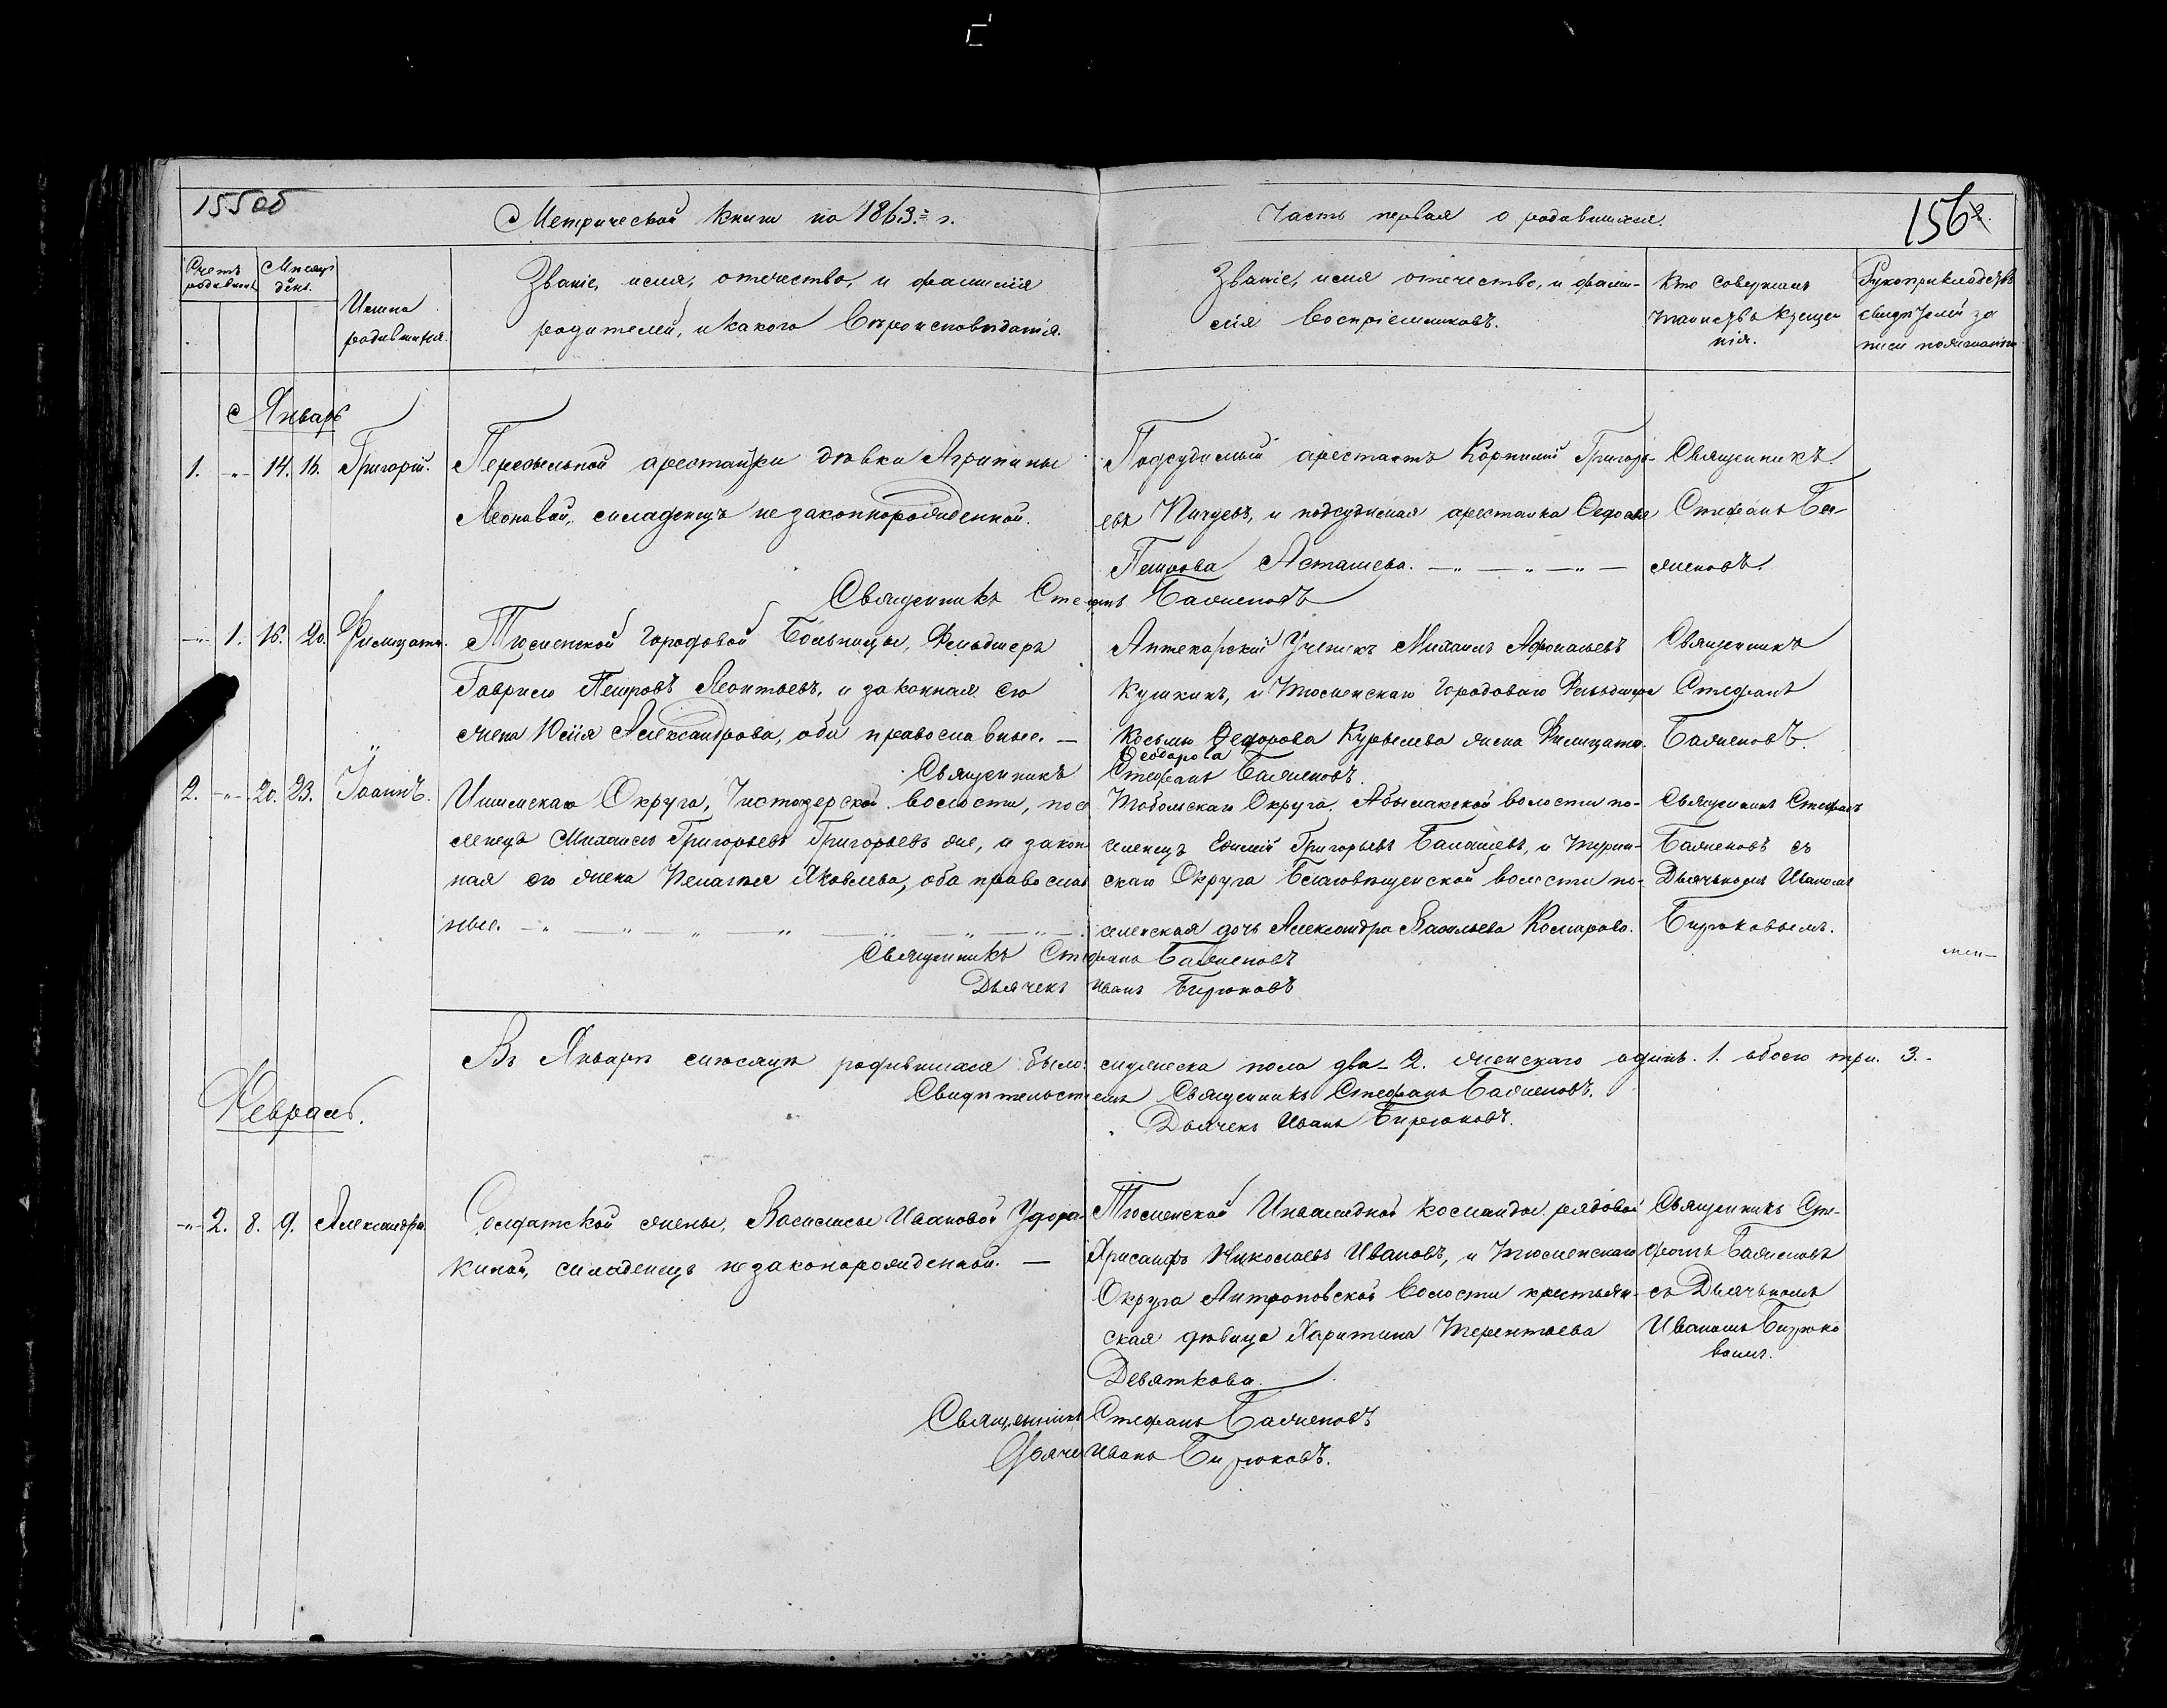 155 об
156
Метрической книги на 1863. г.
Часть первая о родившихся.
Счетъ родивших.
Месяцъ день.
Имена родившихся.
Званіе, имя, отчество, и фамилія
родителей, и какого вѣроисповѣданія.
Званіе, имя отчество, и фами-
лія воспріемниковъ.
Кто совершалъ
таинство креще
нія.
Рукоприкладство
свидѣтелей за
писи по желанію
Январь
1. -"- 14. 16. Григорій.
Пересыльной арестантки дѣвки Агрипины
Леоновой, младенецъ незаконнорожденной.
Подсудимый арестантъ Корнилий Григорь-
евъ Пичуевъ, и подсудимая арестанка Федосья
Петрова Асташева. — " — " — " —
Священникъ
Стефанъ Ба-
женовъ.
Священникъ Стефанъ Баженовъ
-"- 1. 16. 20. Филицата.
Тюменской Городовой Больницы, Фельдшеръ
Гаврило Петровъ Леонтьевъ, и законная его
жена Юлія Александрова, оба православные. —
Аптекарский Ученикъ Михаилъ Афонасьевъ
Кушкинъ, и Тюменскаго Городоваго Фельдшера
Косьмы Федорова Курылева жена Филицата.
Феодорова
Священникъ
Стефанъ
Баженовъ.
Священникъ Стефанъ Баженовъ.
2. -"- 20. 23. Іоаннъ.
Ишимскаго Округа, Чистоозерской волости, пос
ленецъ Михаило Григорьевъ Григорьевъ же, и закон-
ная его жена Пелагея Яковлева, оба православ
ные. — " — " — " — " — " — " —
Тобольскаго Округа, Абалакской волости по-
селенецъ Евлмій Григорьевъ Балашевъ, и Турин-
скаго Округа Благовѣщенской волости по-
селенская дочь Александра Васильева Комарова.
Священникъ Стефанъ
Баженовъ съ
Дьячькомъ Иваномъ
Бирюковымъ.
Священникъ Стефанъ Баженовъ
Дьячекъ Иванъ Бирюковъ
Въ Январѣ мѣсяцѣ родившихся было: мужеска пола два - 2. женскаго одинъ. 1. обоего три. 3. -
Свидѣтельствуемъ Священникъ Стефанъ Баженовъ.
Дьячекъ Иванъ Бирюковъ.
Февраль.
-"- 2. 8. 9. Александра.
Солдатской жены, Василисы Ивановой Удора-
киной, младенецъ незаконорожденной. —
Тюменской Инвалидной команды рядовой
Хрисанфъ Николаевъ Ивановъ, и Тюменскаго
Округа Антроповской волости крестьян-
ская дѣвица Харитина Терентьева
Девяткова.
Священникъ Сте-
фанъ Баженовъ
съ Дьячькомъ
Иваномъ Бирюко
вымъ.
Священникъ Стефанъ Баженовъ
Дьячекъ Иванъ Бирюковъ.